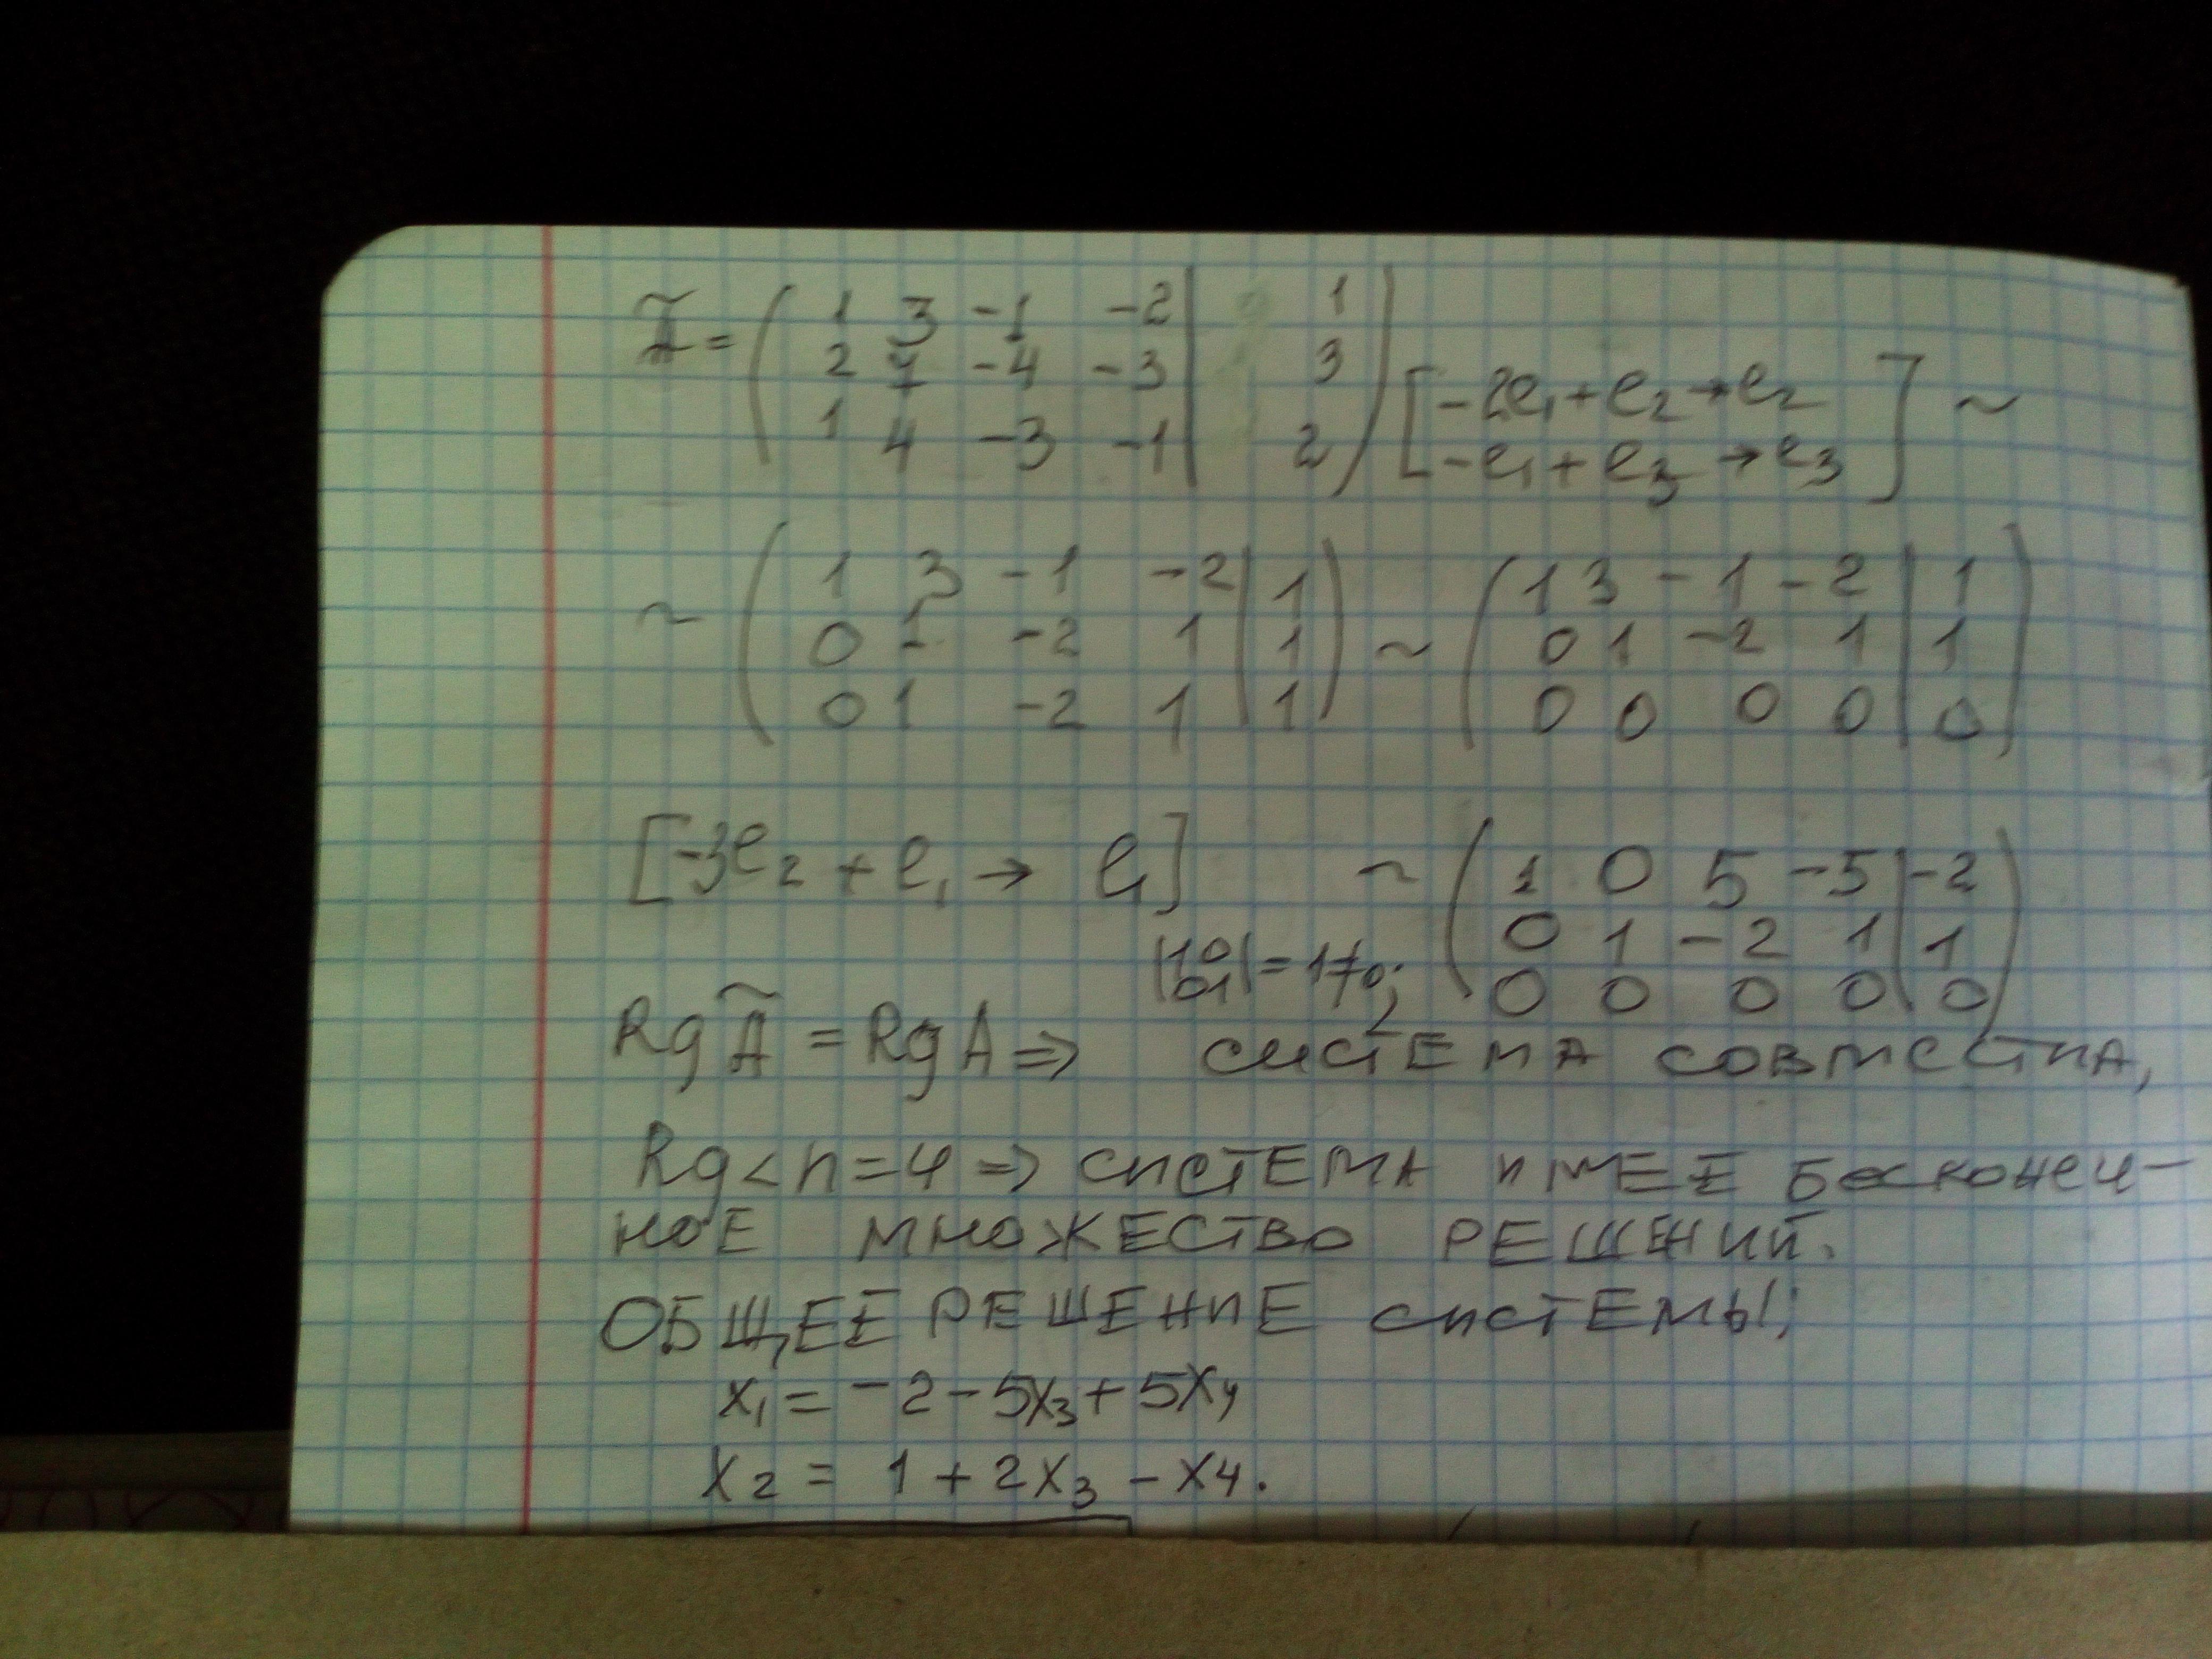 Ã = ( 1 3 -1 -2 | 1 )
( 2 7 -4 -3 | 3 ) [ -2e₁ + e₂ → e₂ ] ~
( 1 4 -3 -1 | 2 ) [ -e₁ + e₃ → e₃ ]
~ ( 1 3 -1 -2 | 1 ) ~ ( 1 3 -1 -2 | 1 )
( 0 1 -2 1 | 1 ) ( 0 1 -2 1 | 1 )
( 0 1 -2 1 | 1 ) ( 0 0 0 0 | 0 )
[-3e₂ + e₁ → e₁] ~ ( 1 0 5 -5 | -2 )
( 0 1 -2 1 | 1 )
( 0 0 0 0 | 0 )
|1 0|
|0 1| = 1≠0;
Rg Ã = Rg A ⇒ система совместна,
Rg < n = 4 ⇒ система имеет бесконеч-
ное множество решений.
Общее решение системы:
x₁ = -2 - 5x₃ + 5x₄
x₂ = 1 + 2x₃ - x₄.